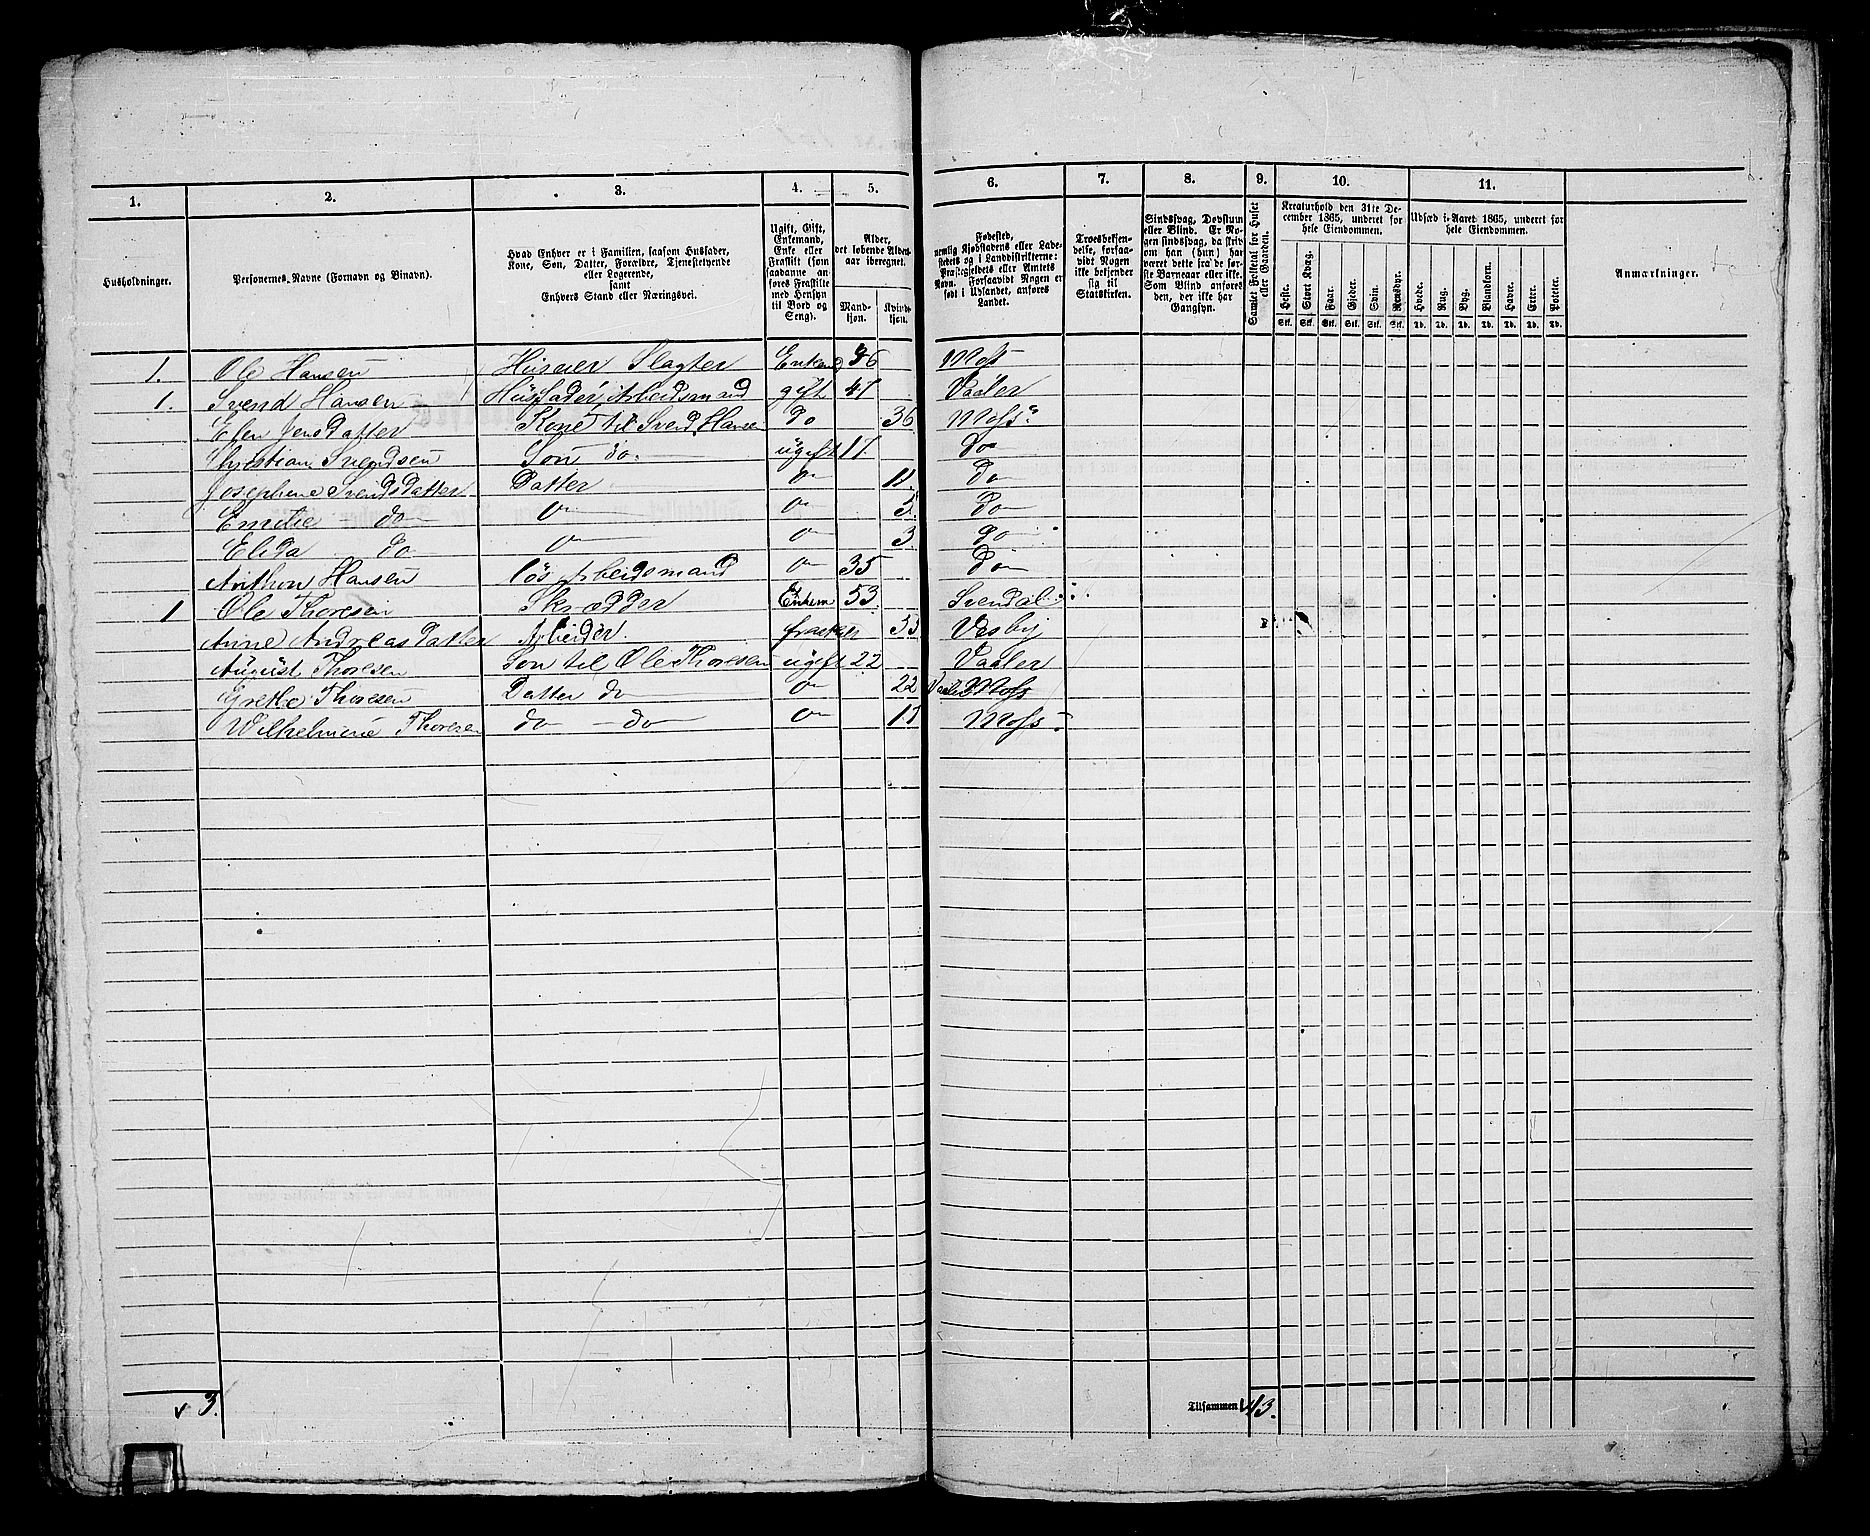 1. 2. 3. 4. 5. 6. 7. 8. 9. 10. 11.
Husholdninger.
Personernes Navne (Fornavn og Binavn).
Hvad Enhver er i Familien, saasom Husfader,
Kone, Søn, Datter, Forældre, Tjenestetyende
eller Logerende,
samt
Enhvers Stand eller Næringsvei.
Ugift, Gift,
Enkemand,
Enke eller
Fraskilt (som
saadanne an-
føres Fraskilte
med Hensyn
til Bord og
Seng).
Alder,
det løbende Alders-
aar iberegnet.
Mand-
kjøn.
Kvinde-
kjøn.
Fødested,
nemlig Kjøbstadens eller Lade-
stedets og i Landdistrikterne:
Præstegjeldets eller Amtets
Navn. Forsaavidt Nogen er
født i Udlandet, anføres
Landet.
Troesbekjen-
delse, forsaa-
vidt Nogen
ikke bekjender
sig til
Statskirken.
Sindssvag, Døvstum
eller Blind. Er No-
gen sindssvag, da skriv
om han (hun) har
været dette fra de før-
ste Barneaar eller ikke.
Som Blind anføres
den, der ikke har
Gangsyn.
Samlet Folketal for Huset
eller Gaarden.
Kreaturhold den 31te De-
cember 1865, underet for
hele Eiendommen.
Heste. Stort Kvæg. Faar. Gjeder. Svin. Rensdyr.
Stk. Stk. Stk. Stk. Stk. Stk.
Udsæd i Aaret 1865, underet for
hele Eiendommen.
Hvede. Rug. Byg. Blandkorn. Havre. Erter. Poteter.
Td. Td. Td. Td. Td. Td. Td.
Anmærkninger.
1. Ole Hansen Huseier Slagter Enkemd 36 Moss
1. Svend Hansen Husfader, Arbeidsmand gift 47 Vaaler
Elen Jensdatter Kone til Svend Hansen do 36 Moss
Christian Svendsen Søn do ugift 17. do
Josephine Svendsdatter Datter 11. do
Emelie do 5 do
Elida do 3 do
Anthon Hansen løs Arbeidsmand 35 do
1 Ole Thoresen Skrædder Enkem 53 Svendal
Anne Andreasdatter Arbeider. 53 Vesby
August Thoresen Søn til Ole Thoresen ugift 22 Vaaler
Grethe Thoresen Datter do 22 Moss
Wilhelmine Thoresen do do Moss
v 3.
Tilsammen 13.